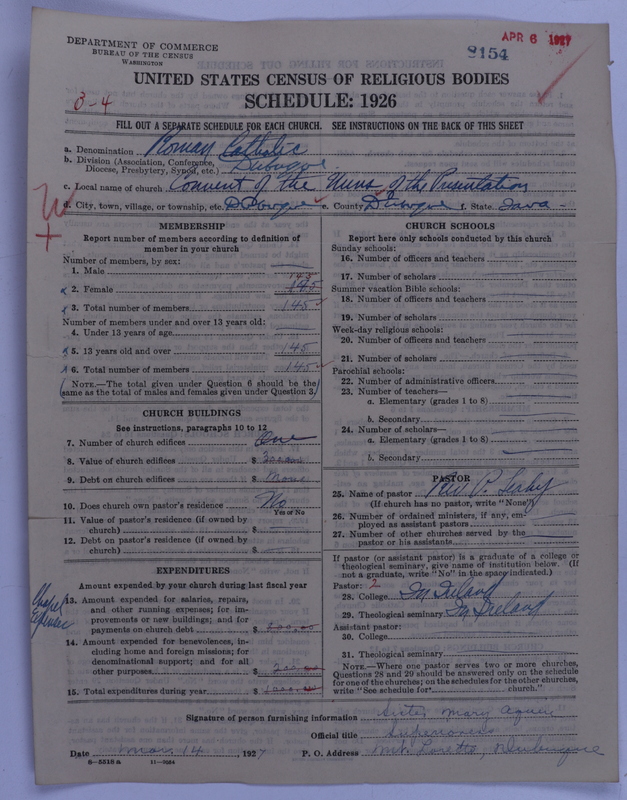 DEPARTMENT OF COMMERCE
BUREAU OF THE CENSUS
WASHINGTON
APR 6 1927
8154
UNITED STATES CENSUS OF RELIGIOUS BODIES
SCHEDULE: 1926
3-4
FILL OUT A SEPARATE SCHEDULE FOR EACH CHURCH. SEE INSTRUCTIONS ON THE BACK OF THIS SHEET
a. Denomination Roman Catholic
b. Division (Association, Conference, Diocese, Presbytery, Synod, etc.) Dubuque
c. Local name of church Convent of the Nuns of the Presentation
d. City, town, village, or township, etc. Dubuque e. County Dubuque f. State Iowa
MEMBERSHIP
Report number of members according to definition of
member in your church
Number of members, by sex:
1. Male
2. Female 145
3. Total number of members 145
Number of members under and over 13 years old:
4. Under 13 years of age
5. 13 years old and over 145
6. Total number of members 145
(NOTE.—The total given under Question 6 should be the
same as the total of males and females given under Question 3)
CHURCH BUILDINGS
See instructions, paragraphs 10 to 12
7. Number of church edifices One
8. Value of church edifices $
9. Debt on church edifices $ None
10. Does church own pastor's residence No
Yes or No
11. Value of pastor's residence (if owned by
church) $
12. Debt on pastor's residence (if owned by
church) $
EXPENDITURES
Amount expended by your church during last fiscal year
Chapel Expenses
13. Amount expended for salaries, repairs,
and other running expenses; for im-
provements or new buildings; and for
payments on church debt $ 800.00
14. Amount expended for benevolences, in-
cluding home and foreign missions; for
denominational support; and for all
other purposes $ 200.00
15. Total expenditures during year $ 1000.00
CHURCH SCHOOLS
Report here only schools conducted by this church
Sunday schools:
16. Number of officers and teachers
17. Number of scholars
Summer vacation Bible schools:
18. Number of officers and teachers
19. Number of scholars
Week-day religious schools:
20. Number of officers and teachers
21. Number of scholars
Parochial schools:
22. Number of administrative officers
23. Number of teachers—
a. Elementary (grades 1 to 8)
b. Secondary
24. Number of scholars—
a. Elementary (grades 1 to 8)
b. Secondary
PASTOR
25. Name of pastor Rev. P.
(If church has no pastor, write "None")
26. Number of ordained ministers, if any, em-
ployed as assistant pastors
27. Number of other churches served by the
pastor or his assistants
If pastor (or assistant pastor) is a graduate of a college or
theological seminary, give name of institution below. (If
not a graduate, write "No" in the space indicated.)
Pastor: 2
28. College In Ireland
29. Theological seminary In Ireland
Assistant pastor:
30. College
31. Theological seminary
NOTE.—Where one pastor serves two or more churches,
Questions 28 and 29 should be answered only on the schedule
for one of the churches; on the schedules for the other churches,
write "See schedule for church."
Signature of person furnishing information Sister Mary
Official title Superioress
Date Mar. 14, 1927 P. O. Address Mt. Loretto, Dubuque
8—5518 a 11—9084